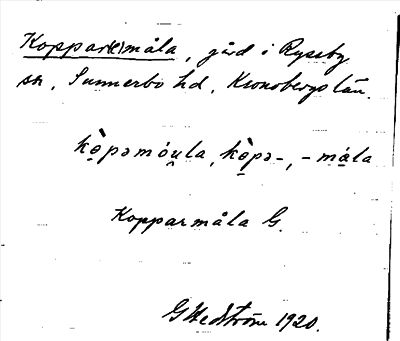 Koppar(e)måla, gård i Ryssby
sn, Sunnerbo hd, Kronobergs län.
kò̤pəmóu̯la, kò̤pə-, -måla
Kopparmåla G.
G Hedström 1920.